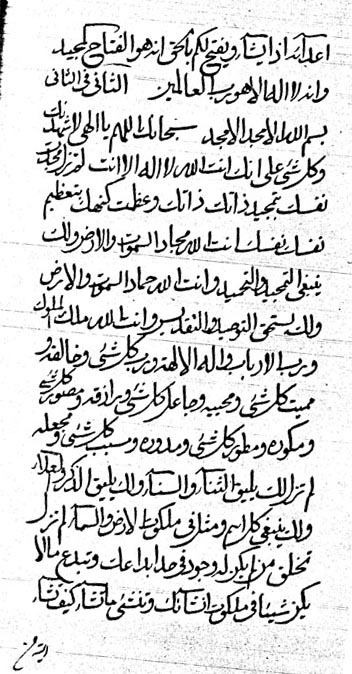 اعدآئه اذا يشآء و يفتح لكم بالحق انه هو الفتاح المجيد
و انه لا اله الا هو رب العالمين الثانى فى الثانى
بسم الله الامجد الامجد سبحانك اللهم يا الهى لاشهدنك
و كل شئ على انك انت الله لا اله الا انت لم تزل
نفسك بتمجيد ذاتك ذاتك و عظمت كنهك بتعظيم
نفسك نفسك انت الله مجاد السموات و الارض و لك
ينبغى التمجيد و التحميد و انت الله حماد السموات و الارض
و لك يستحق التوحيد و التقديس و انت الله ملك الملوك
و رب الارباب و اله الالهة و رب كل شئ و خالقه و
مميت كل شئ و محييه و جاعل كل شئ و رازقه و مصور كل شئ
و مكونه و مطور كل شئ و مدوره و مسبب كل شئ و مجعله
لم تزل لك يليق الثنآء و السنآء و لك يليق الذكر و العلاء
و لك ينبغى كل اسم و مثل فى ملكوت الارض و السمآء لم تزل
تخلق من لم يكن له وجود فى حد ابداعك و تبدع ما لا
يكن شيئا فى ملكوت انشائك و تنشئ ما تشآء كيف تشآء